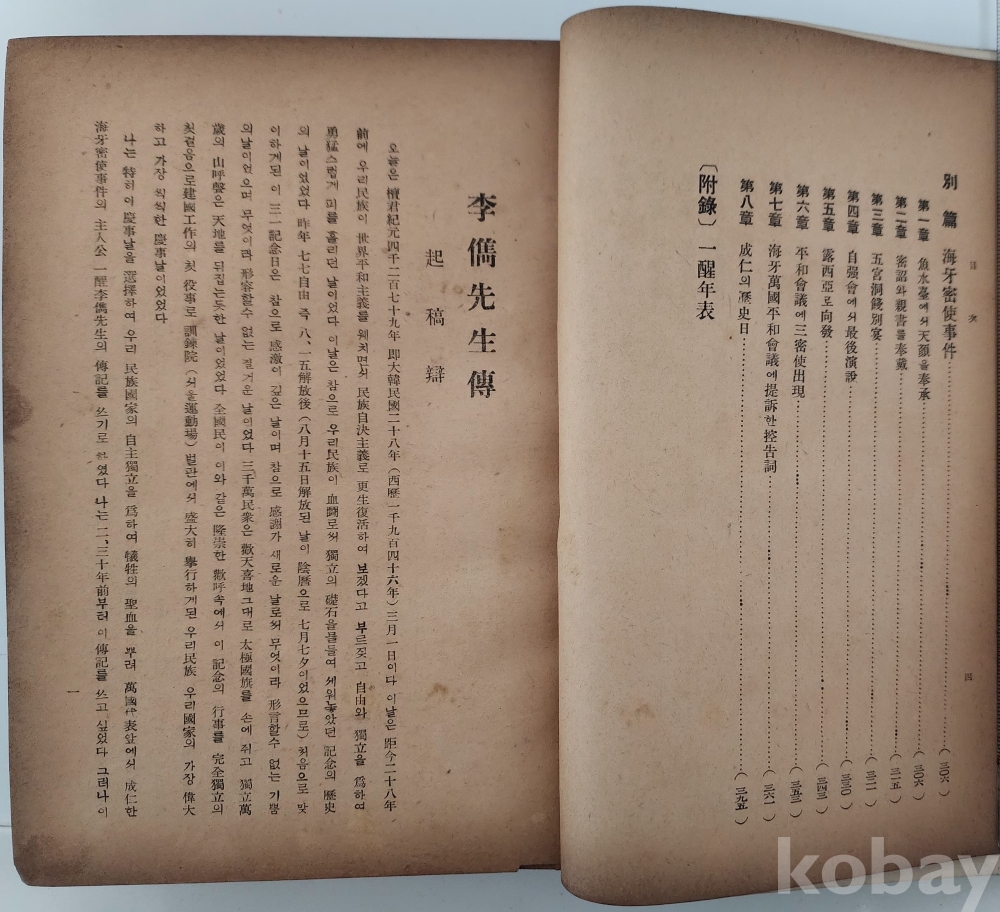 別篇 海牙密使事件……(三〇六)
第一章 魚水臺에서天顔을奉承……(三〇六)
第二章 密詔와親書를奉戴……(三一五)
第三章 五宮洞餞別宴……(三二一)
第四章 自强會에서最後演說……(三三〇)
第五章 露西亞로向發……(三四三)
第六章 平和會議에三密使出現……(三五三)
第七章 海牙萬國平和會議에提訴한控告詞……(三六一)
第八章 成仁의歷史日……(三九五)
〔附錄〕一醒年表
目次
四
李儁先生傳
起稿辯
오늘은 檀君紀元四千二百七十九年 即大韓民國二十八年(西歷一千九百四十六年)三月一日이다 이날은 距今二十八年
前에 우리民族이 世界平和主義를 웨치면서 民族自決主義로 更生復活하여 보겠다고 부르짖고 自由와 獨立을 爲하여
勇猛스럽게 피를 흘리던 날이었다 이날은 참으로 우리民族이 血鬪로써 獨立의 礎石을물들여 세워놓았던 記念의 歷史
의 날이었었다 昨年 七七自由 즉 八、一五解放後(八月十五日解放된 날이 陰曆으로 七月七夕이었으므로) 처음으로 맞
이하게된 이 三一記念日은 참으로 感激이 깊은 날이며 참으로 感謝가 새로운 날로써 무엇이라 形言할수 없는 기쁨
의날이었으며 무엇이라 形容할수 없는 질거운 날이었다 三千萬民衆은 歡天喜地그대로 太極國旗를 손에 쥐고 獨立萬
歲의 山呼聲은 天地를 뒤집는듯한 날이었었다 全國民이 이와 같은 隆崇한 歡呼속에서 이 記念의 行事를 完全獨立의
첫걸음으로建國工作의 첫 役事로 訓鍊院(서울運動場) 벌판에서 盛大히 擧行하게된 우리民族 우리國家의 가장 偉大
하고 가장 씩씩한 慶事날이었었다
나는 特히이 慶事날을 選擇하여 우리 民族國家의 自主獨立을 爲하여 犧牲의 聖血을 뿌려 萬國代表앞에서 成仁한
海牙密使事件의 主人公 一醒李儁先生의 傳記를 쓰기로 하였다 나는 二、三十年前부터 이傳記를 쓰고 싶었다 그러나이
一
kobay